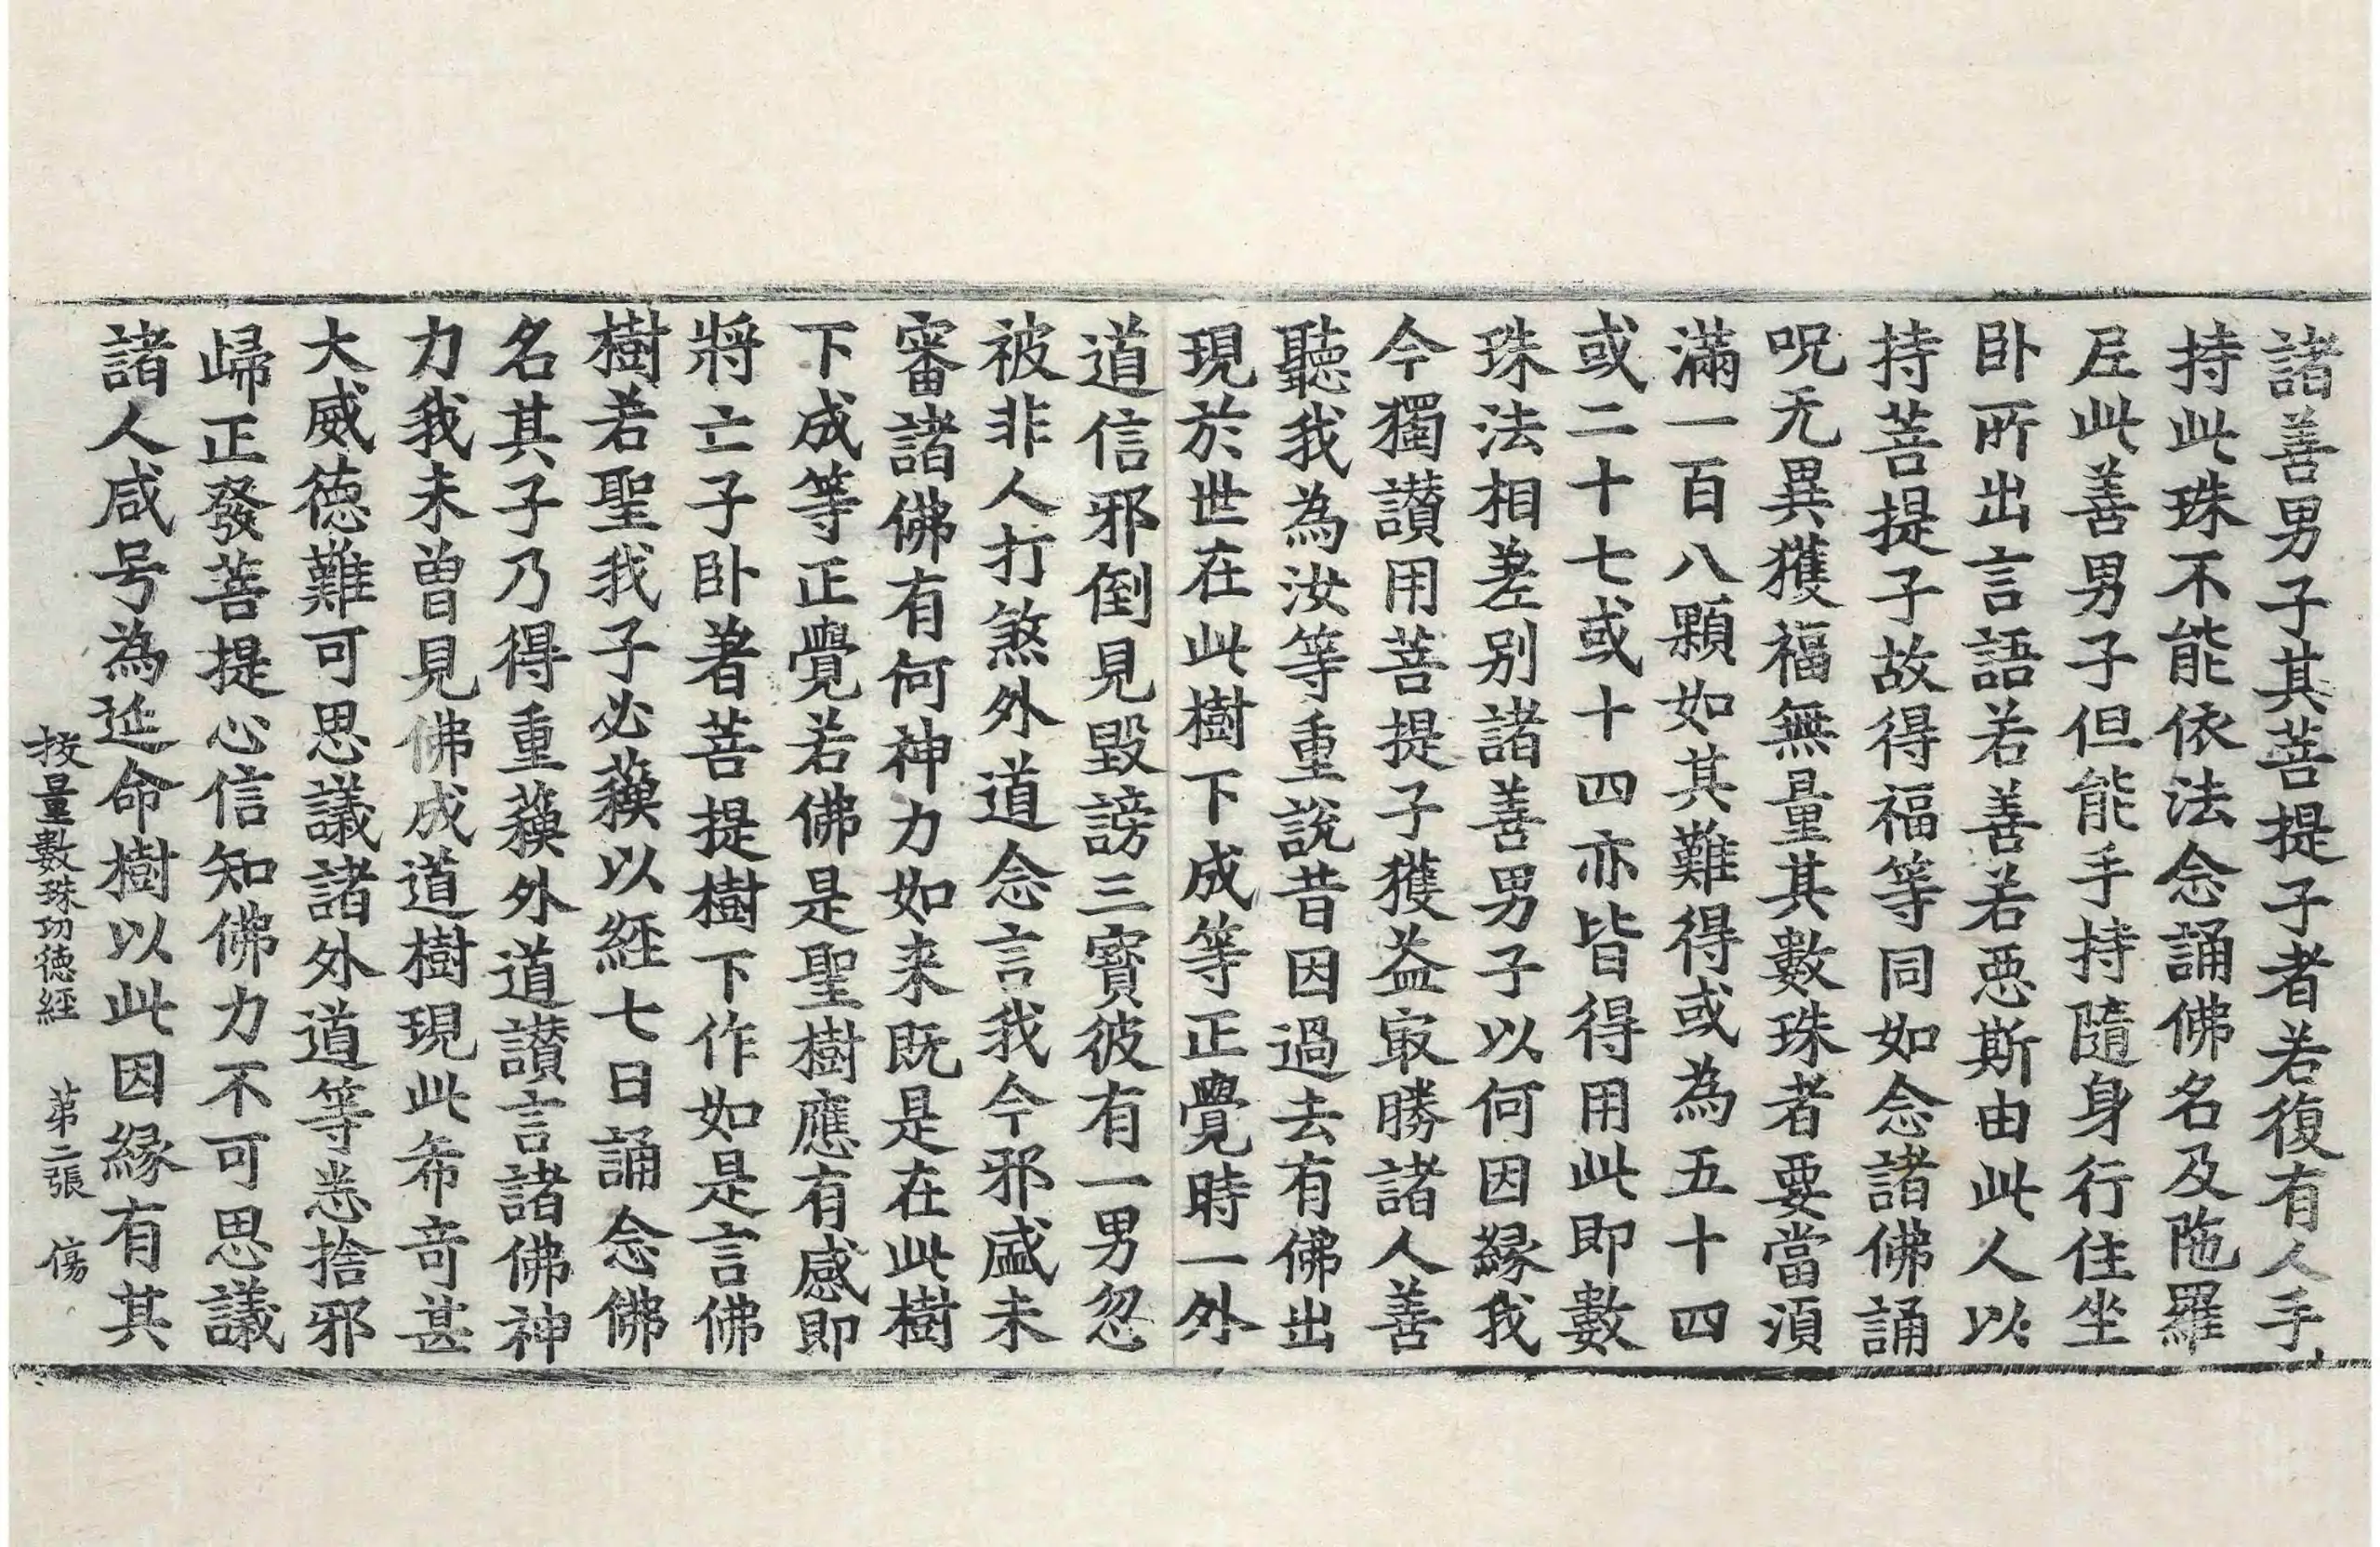 諸善男子其菩提子者若復有人手
持此珠不能依法念誦佛名及陁羅
尼此善男子但能手持隨身行住坐
卧所出言語若善若惡斯由此人以
持菩提子故得福等同如念諸佛誦
呪无異獲福無量其數珠者要當湏
滿一百八顆如其難得或為五十四
或二十七或十四亦皆得用此即數
珠法相差别諸善男子以何因緣我
今獨讃用菩提子獲益㝡勝諸人善
聽我為汝等重說昔因過去有佛出
現於世在此樹下成等正覺時一外
道信邪倒見毀謗三寶彼有一男忽
被非人打煞外道念言我今邪盛未
審諸佛有何神力如来既是在此樹
下成等正覺若佛是聖樹應有感即
將亡子卧著菩提樹下作如是言佛
樹若聖我子必蘇以經七日誦念佛
名其子乃得重蘇外道讃言諸佛神
力我未曽見佛成道樹現此希竒甚
大威德難可思議諸外道等悉捨邪
歸正發菩提心信知佛力不可思議
諸人咸号為延命樹以此因緣有其
挍量數珠功德經　苐二張　傷